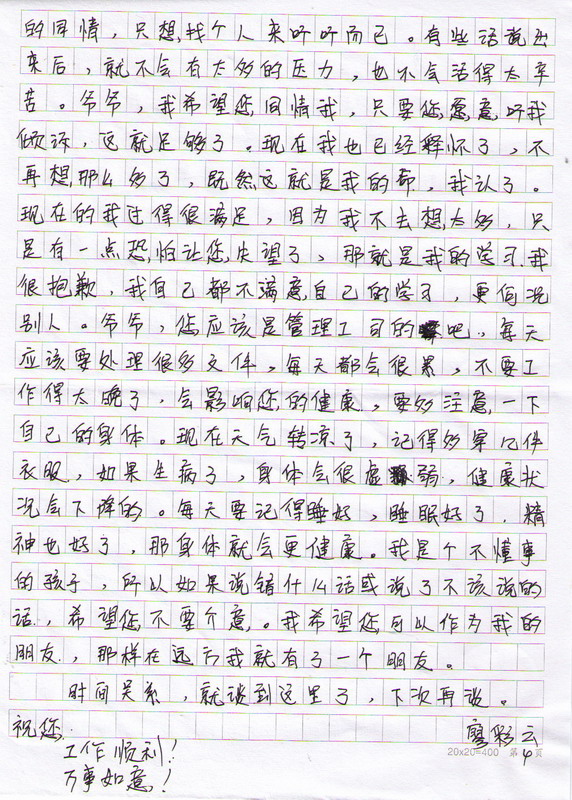 的同情，只想找个人来听听而已。有些话说出
来后，就不会有太多的压力，也不会活得太辛
苦。爷爷，我希望您同情我，只要您愿意听我
倾诉，这就足够了。现在我也已经释怀了，不
再想那么多了，既然这就是我的命，我认了。
现在的我过得很满足，因为我不去想太多，只
是有一点恐怕让您失望了，那就是我的学习.我
很抱歉，我自己都不满意自己的学习，更何况
别人。爷爷，您应该是管理工司的吧，每天
应该要处理很多文件，每天都会很累，不要工
作得太晚了，会影响您的健康，要多注意一下
自己的身体。现在天气转凉了，记得多穿几件
衣服，如果生病了，身体会很虚弱，健康状
况会下降的。每天要记得睡好，睡眠好了，精
神也好了，那身体就会更健康。我是个不懂事
的孩子，所以如果说错什么话或说了不该说的
话，希望您不要介意。我希望您可以作为我的
朋友，那样在远方我就有了一个朋友。
时间关系，就谈到这里了，下次再谈。
祝您 廖彩云
工作顺利！ 20x20=400 第4页
万事如意！